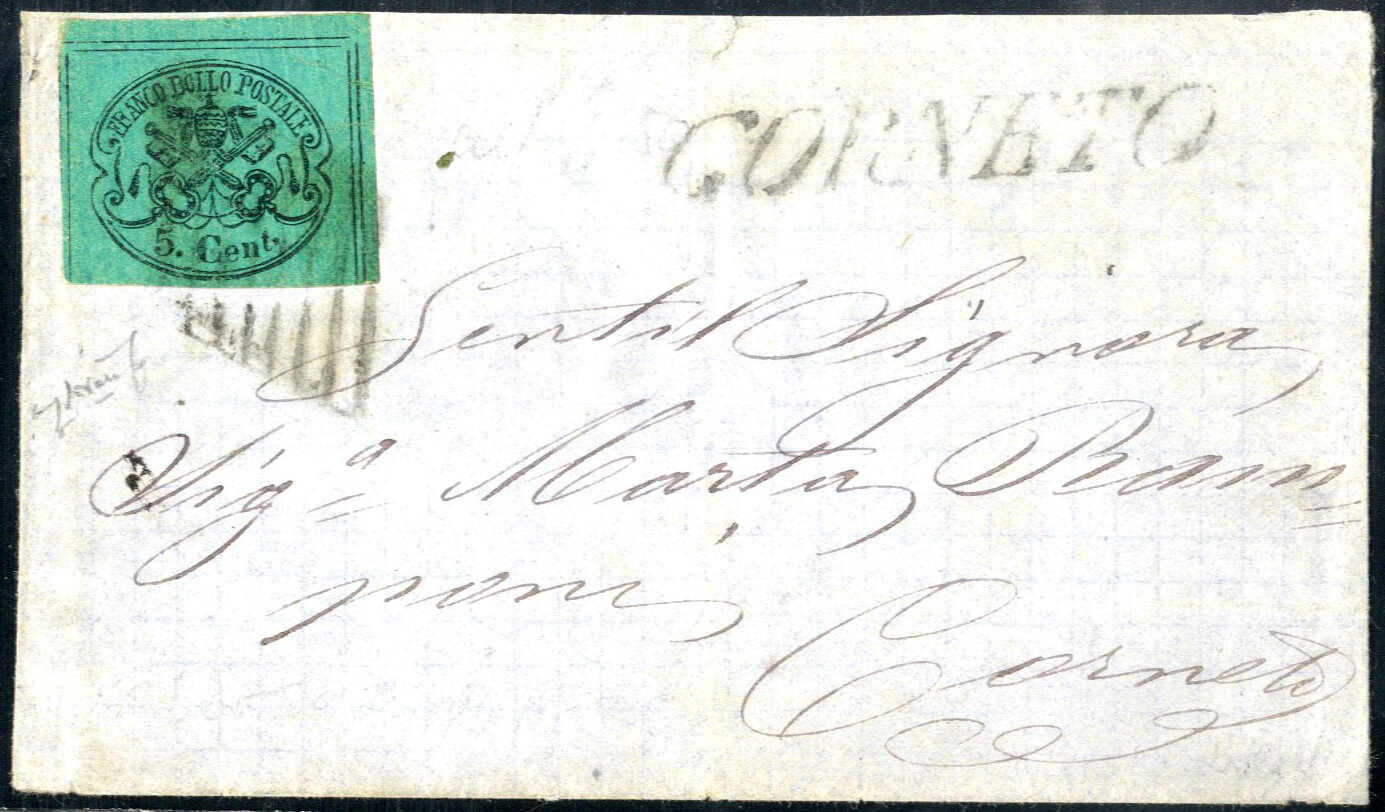 FRANCO BOLLO POSTALE
5. Cent.
CORNETO
Gentil Signora
Sig.ª Marta Ram=
poni
Corneto